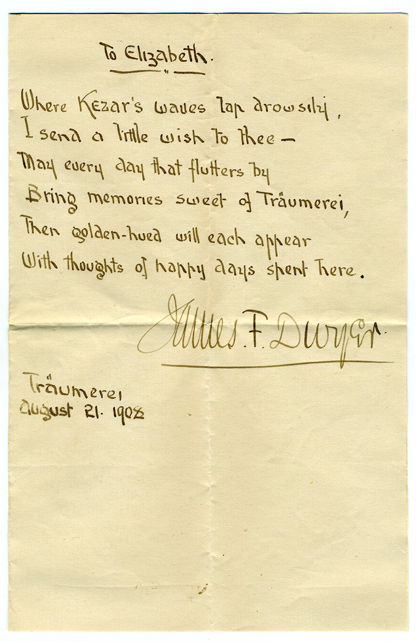 To Elizabeth.
Where Kezar's waves lap drowsily,
I send a little wish to thee —
May every day that flutters by
Bring memories sweet of Träumerei,
Then golden-hued will each appear
With thoughts of happy days spent here.
James. F. Dwyer.
Träumerei
August 21. 1908